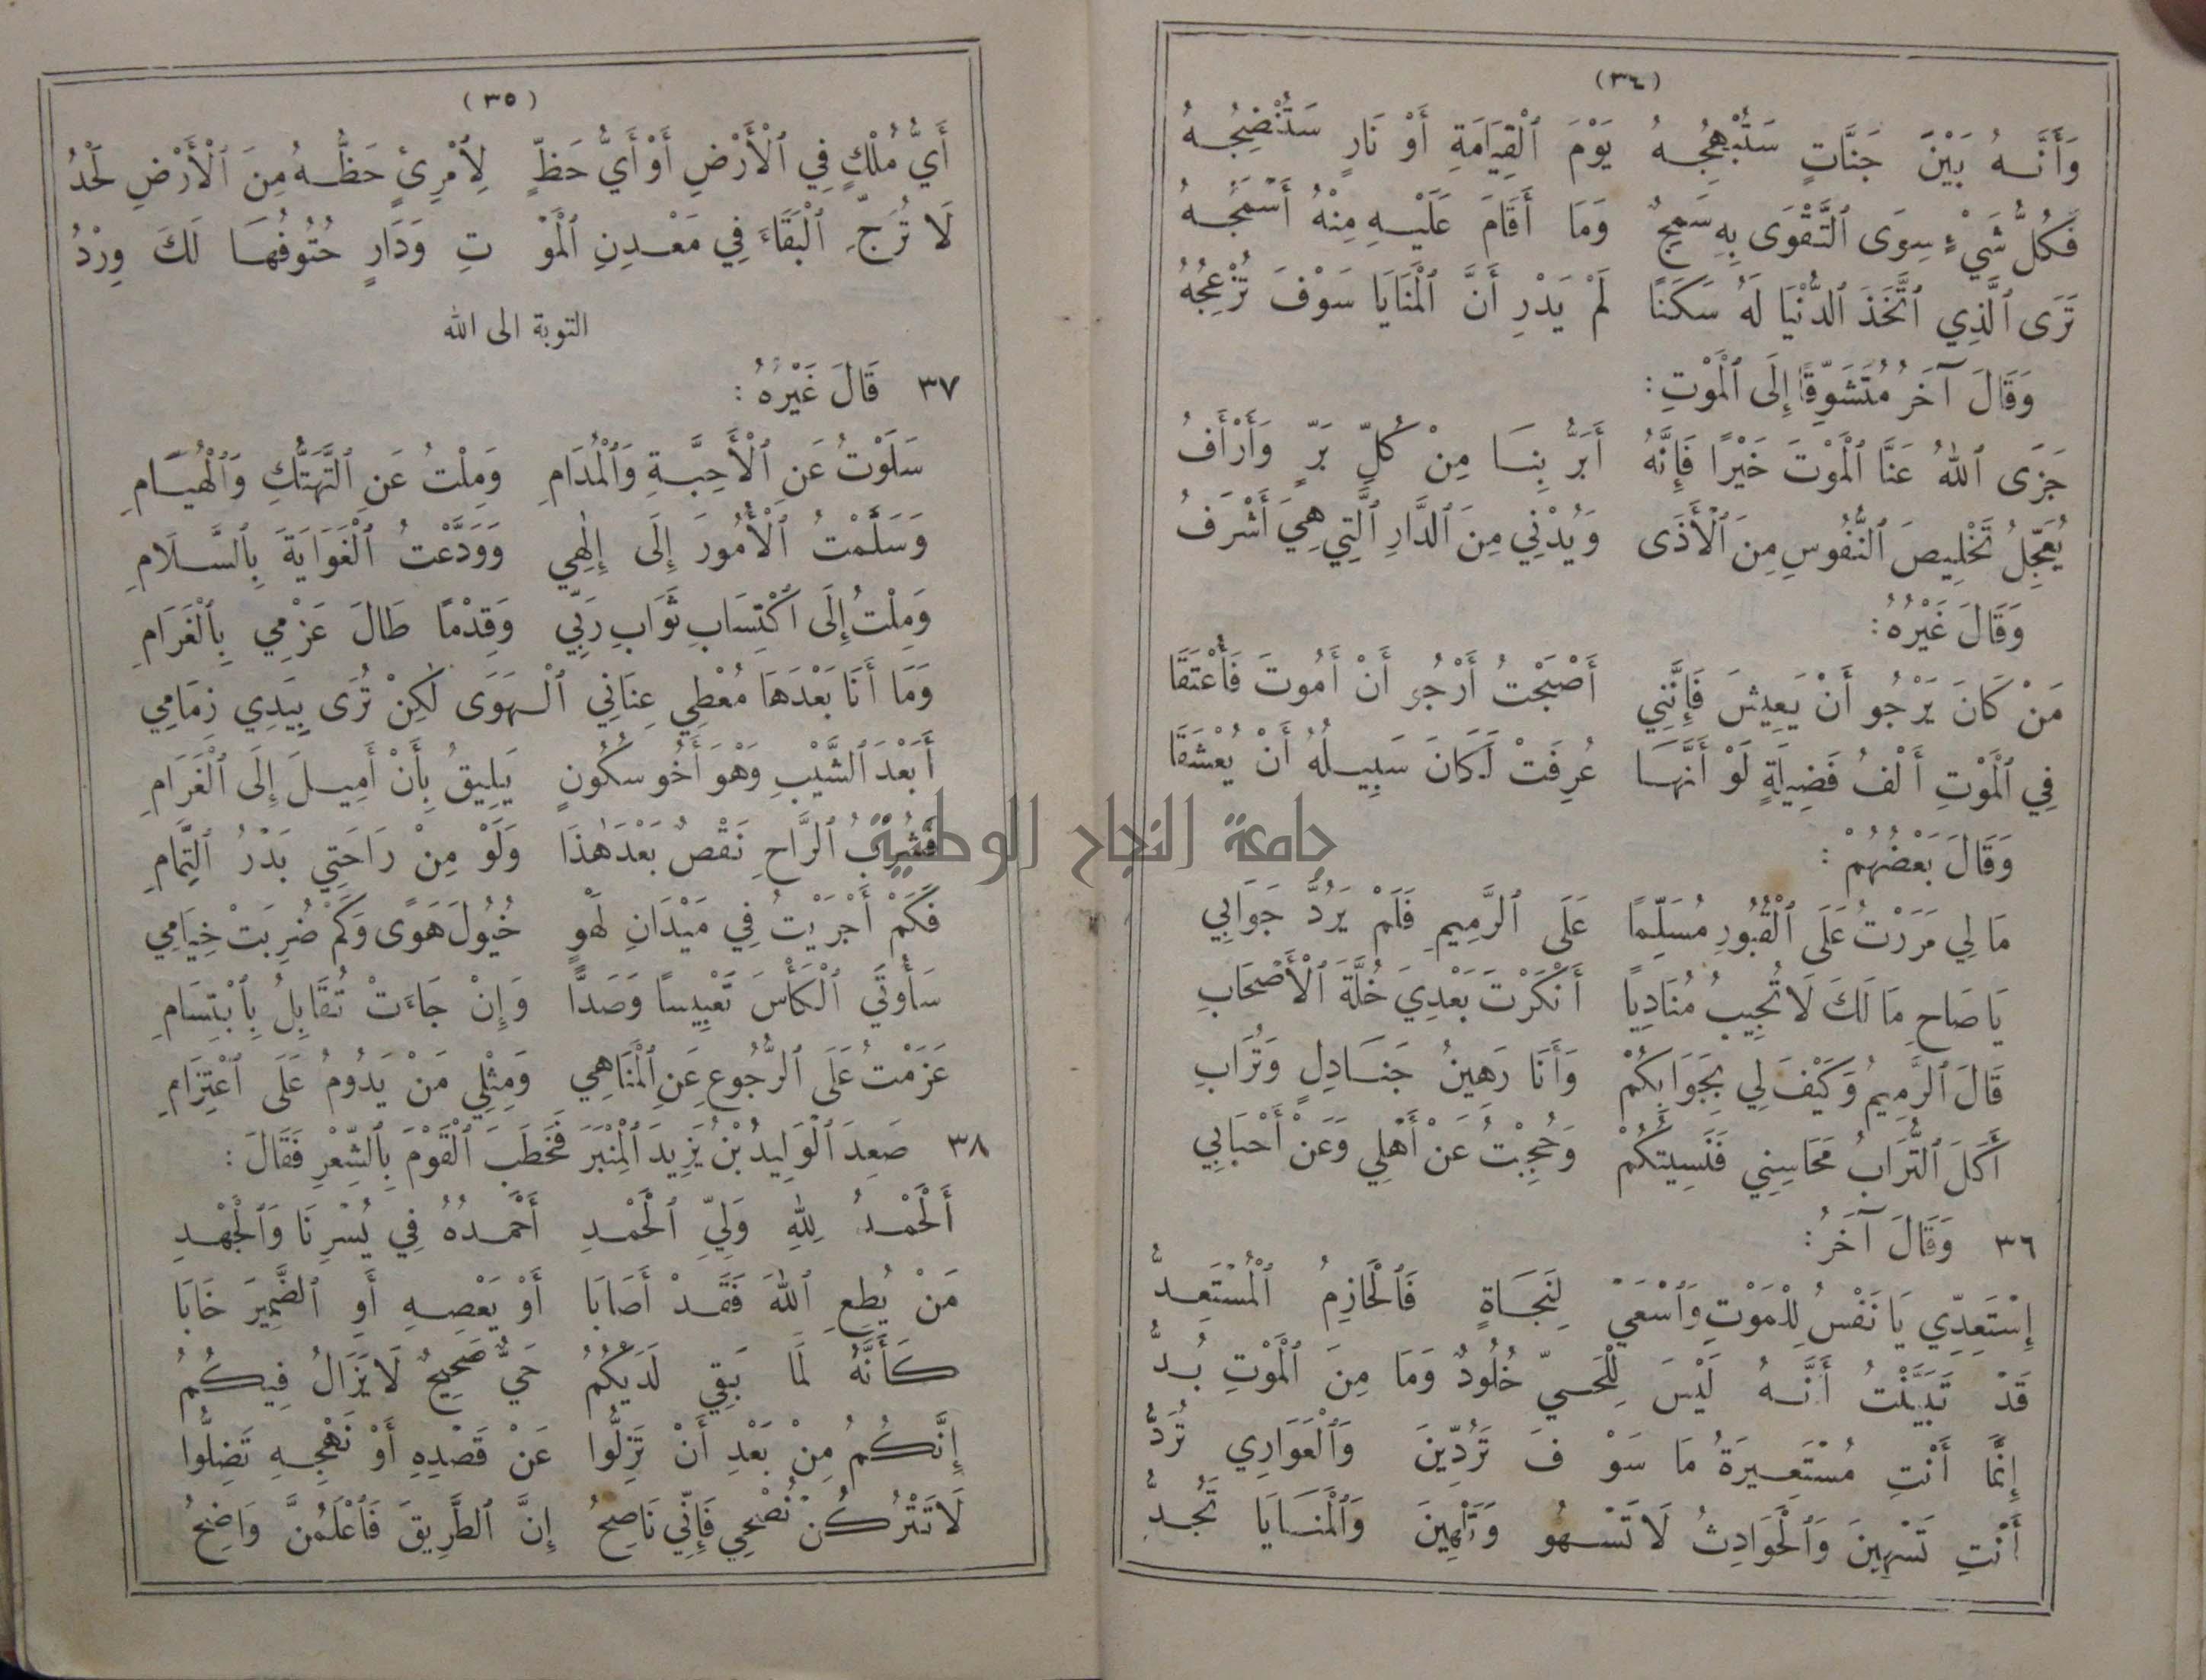 (٣٤)
وَأَنَّهُ بَيْنَ جَنَّاتٍ سَتُبْهِجُهُ يَوْمَ ٱلْقِيَامَةِ أَوْ نَارٍ سَتُنْضِجُهُ
فَكُلُّ شَيْءٍ سِوَى ٱلتَّقْوَى بِهِ سَمِجٌ وَمَا أَقَامَ عَلَيْهِ مِنْهُ أَسْمَجُهُ
تَرَى ٱلَّذِي ٱتَّخَذَ ٱلدُّنْيَا لَهُ سَكَنًا لَمْ يَدْرِ أَنَّ ٱلْمَنَايَا سَوْفَ تُزْعِجُهُ
وَقَالَ آخَرُ مُتَشَوِّقًا إِلَى ٱلْمَوْتِ:
جَزَى ٱللهُ عَنَّا ٱلْمَوْتَ خَيْرًا فَإِنَّهُ أَبَرُّ بِنَا مِنْ كُلِّ بَرٍّ وَأَرْأَفُ
يُعَجِّلُ تَخْلِيصَ ٱلنُّفُوسِ مِنَ ٱلْأَذَى وَيُدْنِي مِنَ ٱلدَّارِ ٱلَّتِي هِيَ أَشْرَفُ
وَقَالَ غَيْرُهُ:
مَنْ كَانَ يَرْجُو أَنْ يَعِيشَ فَإِنَّنِي أَصْبَحْتُ أَرْجُو أَنْ أَمُوتَ فَأُعْتَقَا
فِي ٱلْمَوْتِ أَلْفُ فَضِيلَةٍ لَوْ أَنَّهَا عُرِفَتْ لَكَانَ سَبِيلُهُ أَنْ يُعْشَقَا
وَقَالَ بَعْضُهُمْ:
مَا لِي مَرَرْتُ عَلَى ٱلْقُبُورِ مُسَلِّمًا عَلَى ٱلرَّمِيمِ فَلَمْ يَرُدَّ جَوَابِي
يَا صَاحِ مَا لَكَ لَا تُجِيبُ مُنَادِيًا أَنْكَرْتَ بَعْدِيَ خُلَّةَ ٱلْأَصْحَابِ
قَالَ ٱلرَّمِيمُ وَكَيْفَ لِي بِجَوَابِكُمْ وَأَنَا رَهِينُ جَنَادِلٍ وَتُرَابِ
أَكَلَ ٱلتُّرَابُ مَحَاسِنِي فَنَسِيتُكُمْ وَحُجِبْتُ عَنْ أَهْلِي وَعَنْ أَحْبَابِي
٣٦ وَقَالَ آخَرُ:
إِسْتَعِدِّي يَا نَفْسُ لِلْمَوْتِ وَٱسْعَيْ لِنَجَاةٍ فَٱلْحَازِمُ ٱلْمُسْتَعِدُّ
قَدْ تَبَيَّنْتُ أَنَّهُ لَيْسَ لِلْحَيِّ خُلُودٌ وَمَا مِنَ ٱلْمَوْتِ بُدُّ
إِنَّمَا أَنْتِ مُسْتَعِيرَةُ مَا سَوْ فَ تَرُدِّينَ وَٱلْعَوَارِي تُرَدُّ
أَنْتِ تَسْهِينَ وَٱلْحَوَادِثُ لَا تَسْهُو وَتَلْهِينَ وَٱلْمَنَايَا تُجِدُّ
(٣٥)
أَيُّ مُلْكٍ فِي ٱلْأَرْضِ أَوْ أَيُّ حَظٍّ لِٱمْرِئٍ حَظُّهُ مِنَ ٱلْأَرْضِ لَحْدُ
لَا تُرَجِّ ٱلْبَقَاءَ فِي مَعْدِنِ ٱلْمَوْ تِ وَدَارٍ حُتُوفُهَا لَكَ وِرْدُ
التوبة الى الله
٣٧ قَالَ غَيْرُهُ:
سَلَوْتُ عَنِ ٱلْأَحِبَّةِ وَٱلْمُدَامِ وَمِلْتُ عَنِ ٱلتَّهَتُّكِ وَٱلْهُيَامِ
وَسَلَّمْتُ ٱلْأُمُورَ إِلَى إِلٰهِي وَوَدَّعْتُ ٱلْغَوَايَةَ بِٱلسَّلَامِ
وَمِلْتُ إِلَى ٱكْتِسَابِ ثَوَابِ رَبِّي وَقِدْمًا طَالَ عَزْمِي بِٱلْغَرَامِ
وَمَا أَنَا بَعْدَهَا مُعْطِي عِنَانِي ٱلْهَوَى لٰكِنْ تُرَى بِيَدِي زِمَامِي
أَبَعْدَ ٱلشَّيْبِ وَهْوَ أَخُو سُكُونٍ يَلِيقُ بِأَنْ أَمِيلَ إِلَى ٱلْغَرَامِ
فَشُرْبُ ٱلرَّاحِ نَقْصٌ بَعْدَ هٰذَا وَلَوْ مِنْ رَاحَتِي بَدْرُ ٱلتَّمَامِ
فَكَمْ أَجْرَيْتُ فِي مَيْدَانِ لَهْوٍ خُيُولَ هَوًى وَكَمْ ضُرِبَتْ خِيَامِي
سَأُوتَي ٱلْكَأْسَ تَعْبِيسًا وَصَدًّا وَإِنْ جَاءَتْ تُقَابِلُ بِٱبْتِسَامِ
عَزَمْتُ عَلَى ٱلرُّجُوعِ عَنِ ٱلْمَنَاهِي وَمِثْلِي مَنْ يَدُومُ عَلَى ٱعْتِزَامِ
٣٨ صَعِدَ ٱلْوَلِيدُ بْنُ يَزِيدَ ٱلْمِنْبَرَ فَخَطَبَ ٱلْقَوْمَ بِٱلشِّعْرِ فَقَالَ:
أَلْحَمْدُ لِلهِ وَلِيِّ ٱلْحَمْدِ أَحْمَدُهُ فِي يُسْرِنَا وَٱلْجَهْدِ
مَنْ يُطِعِ ٱللهَ فَقَدْ أَصَابَا أَوْ يَعْصِهِ أَوِ ٱلضَّمِيرَ خَابَا
كَأَنَّهُ لَمَا بَقِي لَدَيْكُمُ حَيٌّ صَحِيحٌ لَا يَزَالُ فِيكُمُ
إِنَّكُمُ مِنْ بَعْدِ أَنْ تَزِلُّوا عَنْ قَصْدِهِ أَوْ نَهْجِهِ تَضِلُّوا
لَا تَتْرُكُنْ نُصْحِي فَإِنِّي نَاصِحُ إِنَّ ٱلطَّرِيقَ فَٱعْلَمُنَّ وَاضِحُ
جامعة النجاح الوطنية